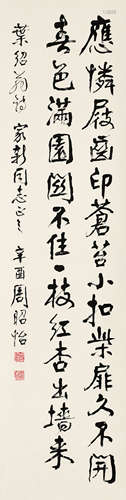 應憐屐齒印蒼苔小扣柴扉久不開
春色滿園關不住一枝紅杏出墙来
葉紹翁詩 家新同志正之 辛酉周昭怡